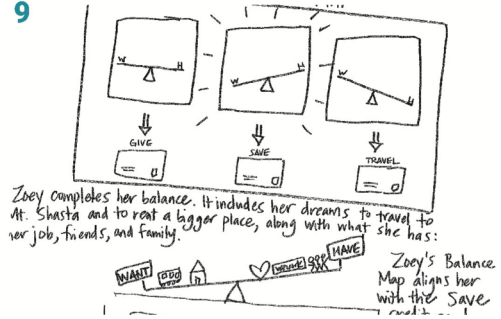 9
W H
W H
W H
GIVE
SAVE
TRAVEL
Zoey completes her balance. It includes her dreams to travel to
Mt. Shasta and to rent a bigger place, along with what she has:
her job, friends, and family.
WANT
HAVE
Zoey's Balance
Map aligns her
with the Save